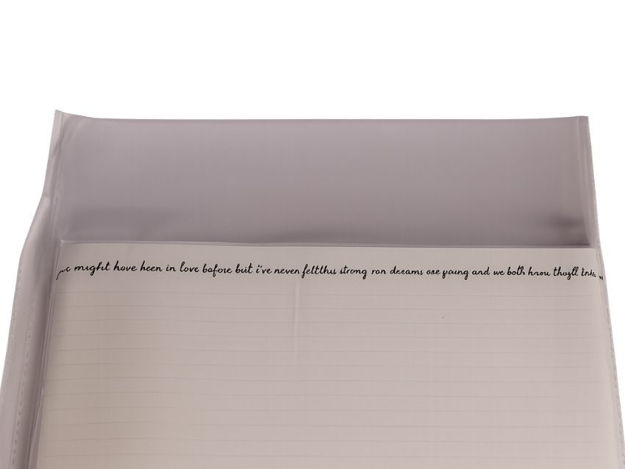 might have been in love before but i've never felt this strong our dreams are young and we both know they'll